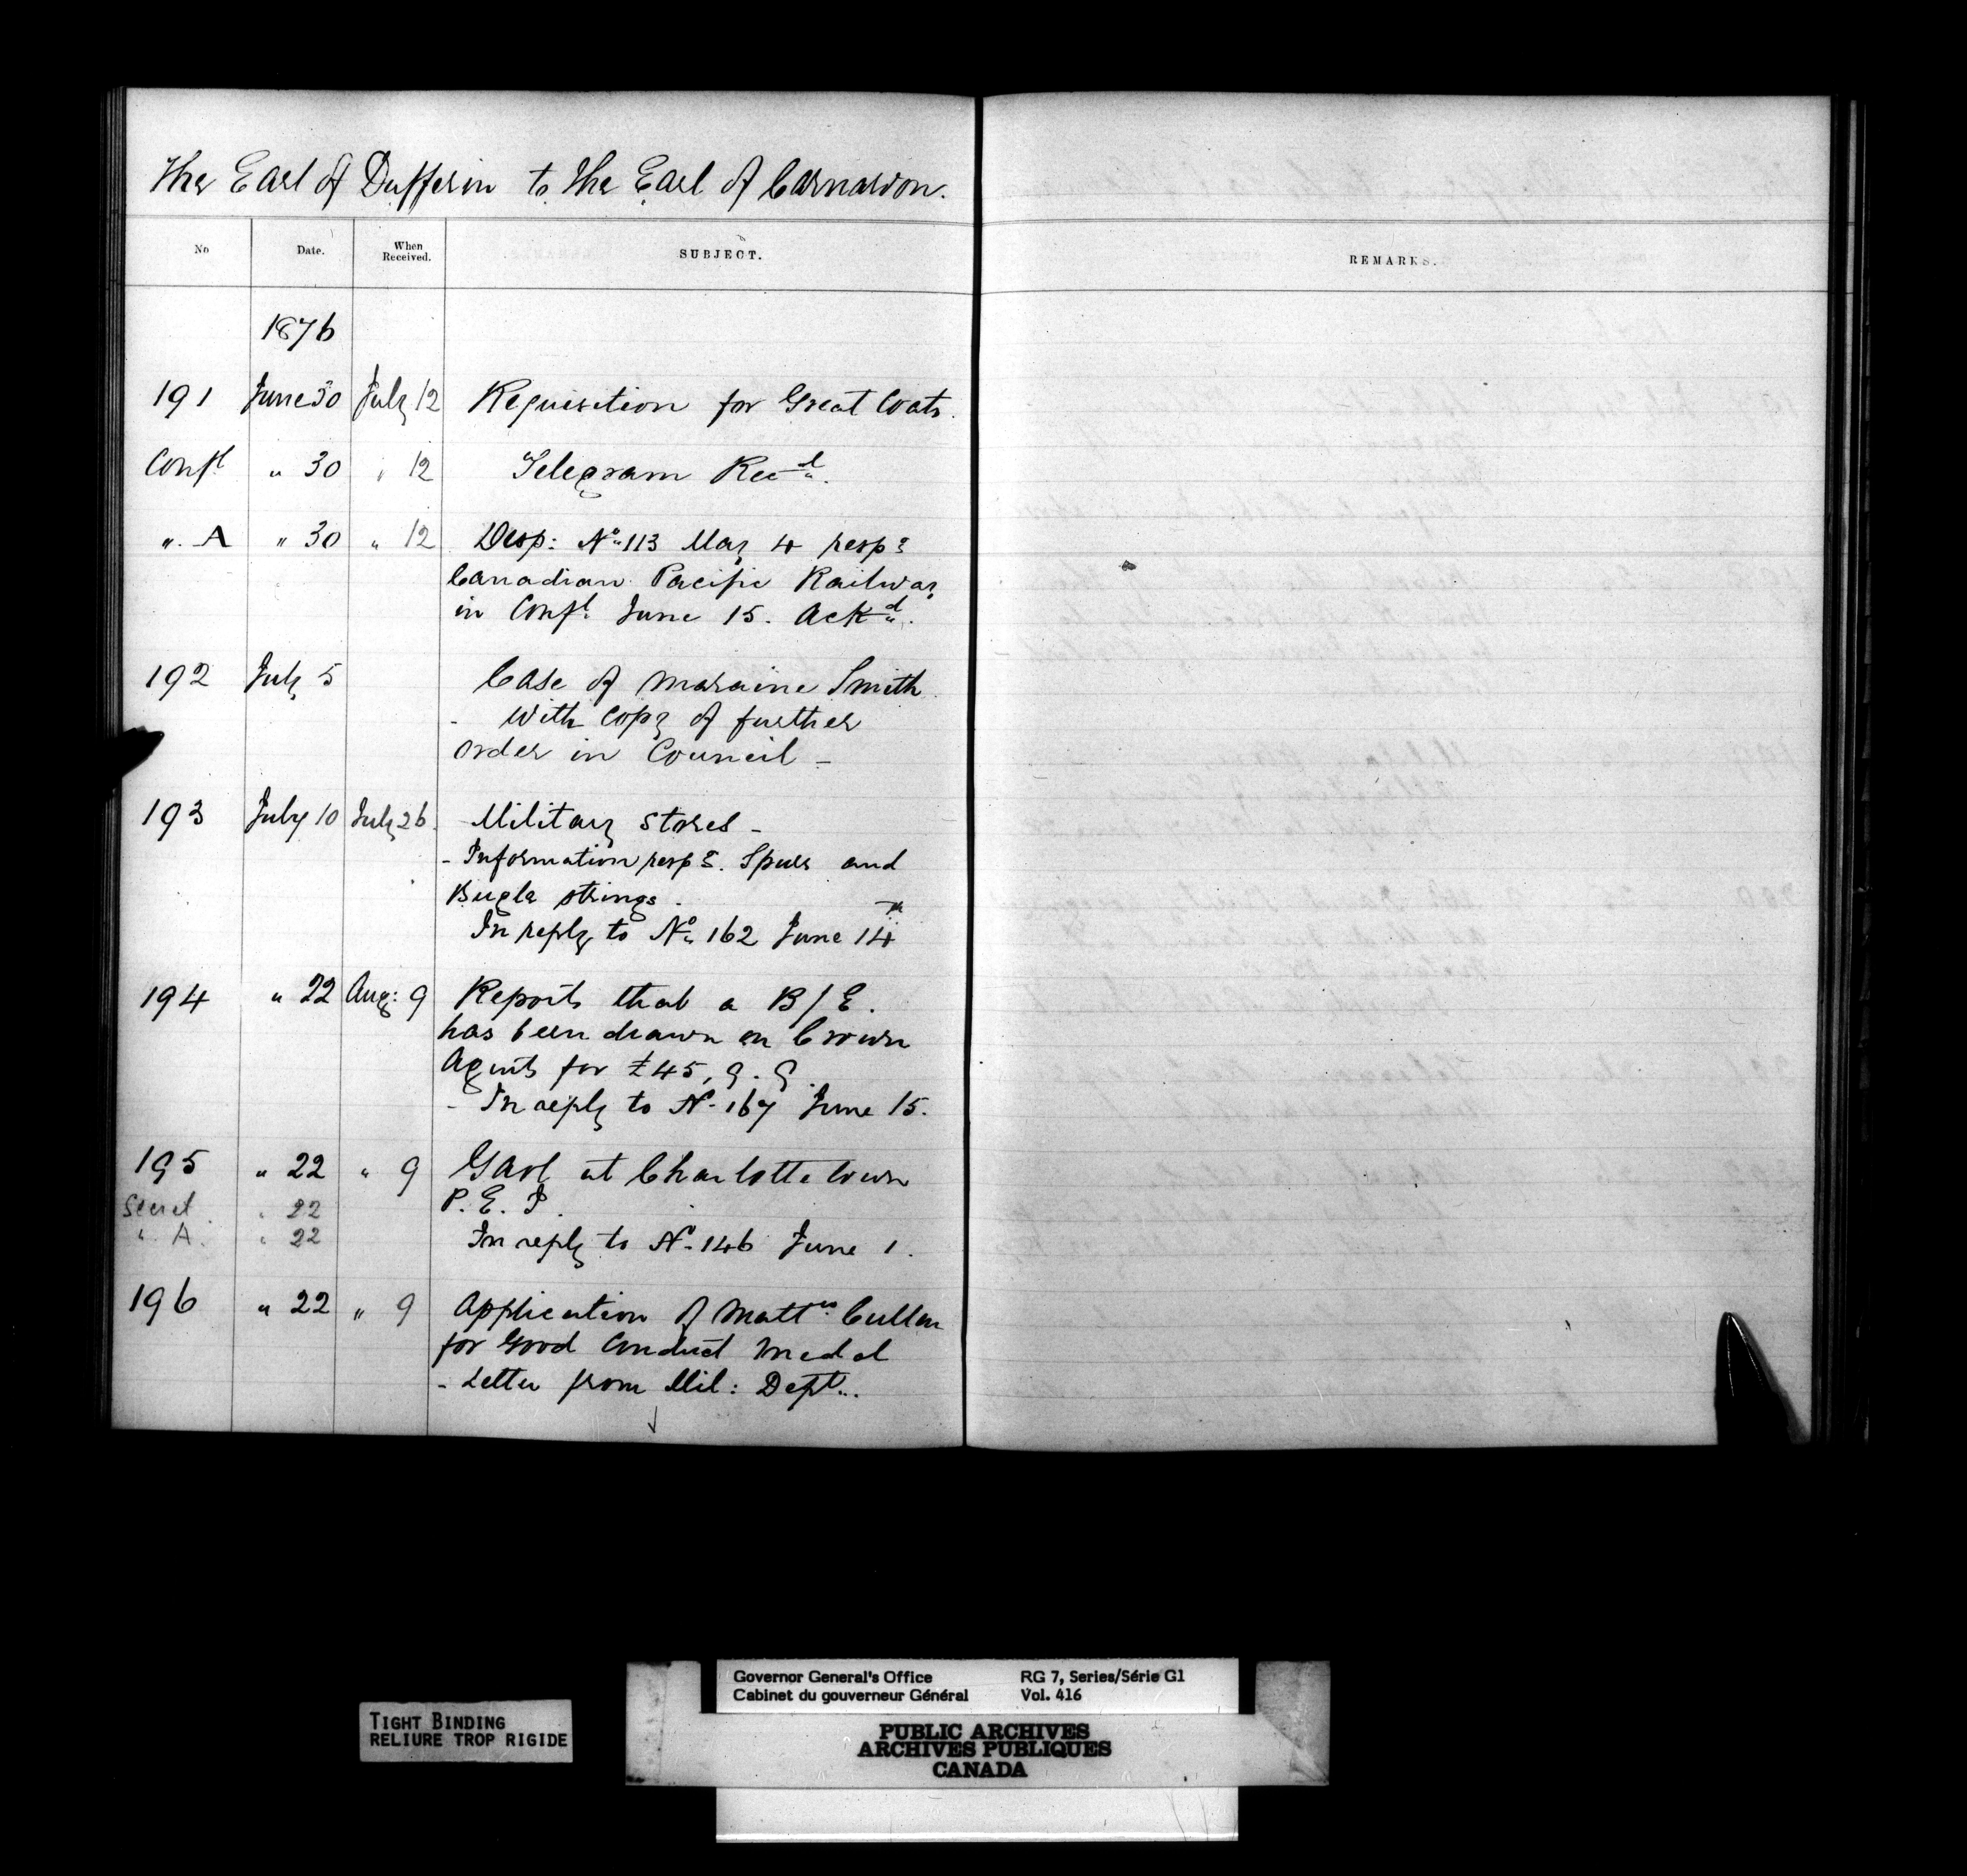 The Earl of Dufferin to the Earl of Carnarvon.
No Date. When Received. SUBJECT. REMARKS.
1876
191 June 30 July 12 Requisition for Great Coats.
Confl " 30 " 12 Telegram Recd.
". A " 30 " 12 Desp: No 113 May 4 respg
Canadian Pacific Railway
in Confl June 15. Ackd.
192 July 5 Case of Maraine Smith
- With copy of further
order in Council -
193 July 10 July 26. Military Stores -
- Information respg. Spurs and
Bugle strings.
In reply to No 162 June 14th
194 " 22 Aug: 9 Reports that a B/E.
has been drawn on Crown
Agents for £45, 9. 9
- In reply to No 167 June 15.
195 " 22 " 9 Gaol at Charlottetown
Secret. " 22 P. E. I.
" A. " 22 In reply to No 146 June 1.
196 " 22 " 9 Application of Mattw Cullen
for Good Conduct Medal
- Letter from Mil: Dept..
Governor General's Office RG 7, Series/Série G1
Cabinet du gouverneur Général Vol. 416
TIGHT BINDING
RELIURE TROP RIGIDE
PUBLIC ARCHIVES
ARCHIVES PUBLIQUES
CANADA